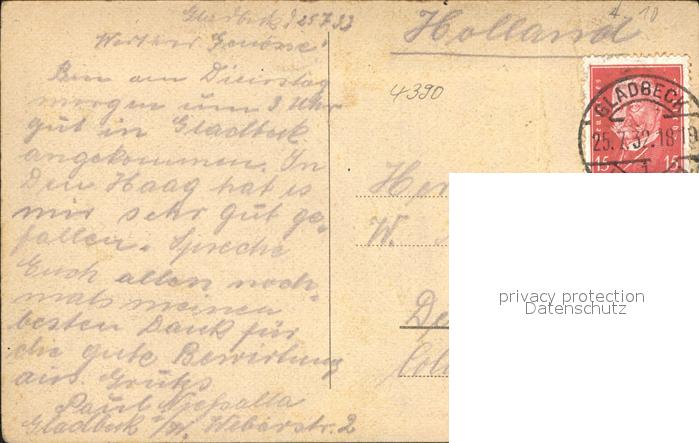 Gladbeck d 25.7.32
Werter Genosse!
Bin am Dienstag
morgen um 3 Uhr
gut in Gladbeck
angekommen. In
Den Haag hat es
mir sehr gut ge-
fallen. Spreche
Euch allen noch-
mals meinen
besten Dank für
die gute Bewirtung
aus. Gruß
Paul
Gladbeck i/W. Weberstr. 2
Holland
4390
GLADBECK
25.7.32.18-19
15 15
Her
W.
De
privacy protection
Datenschutz